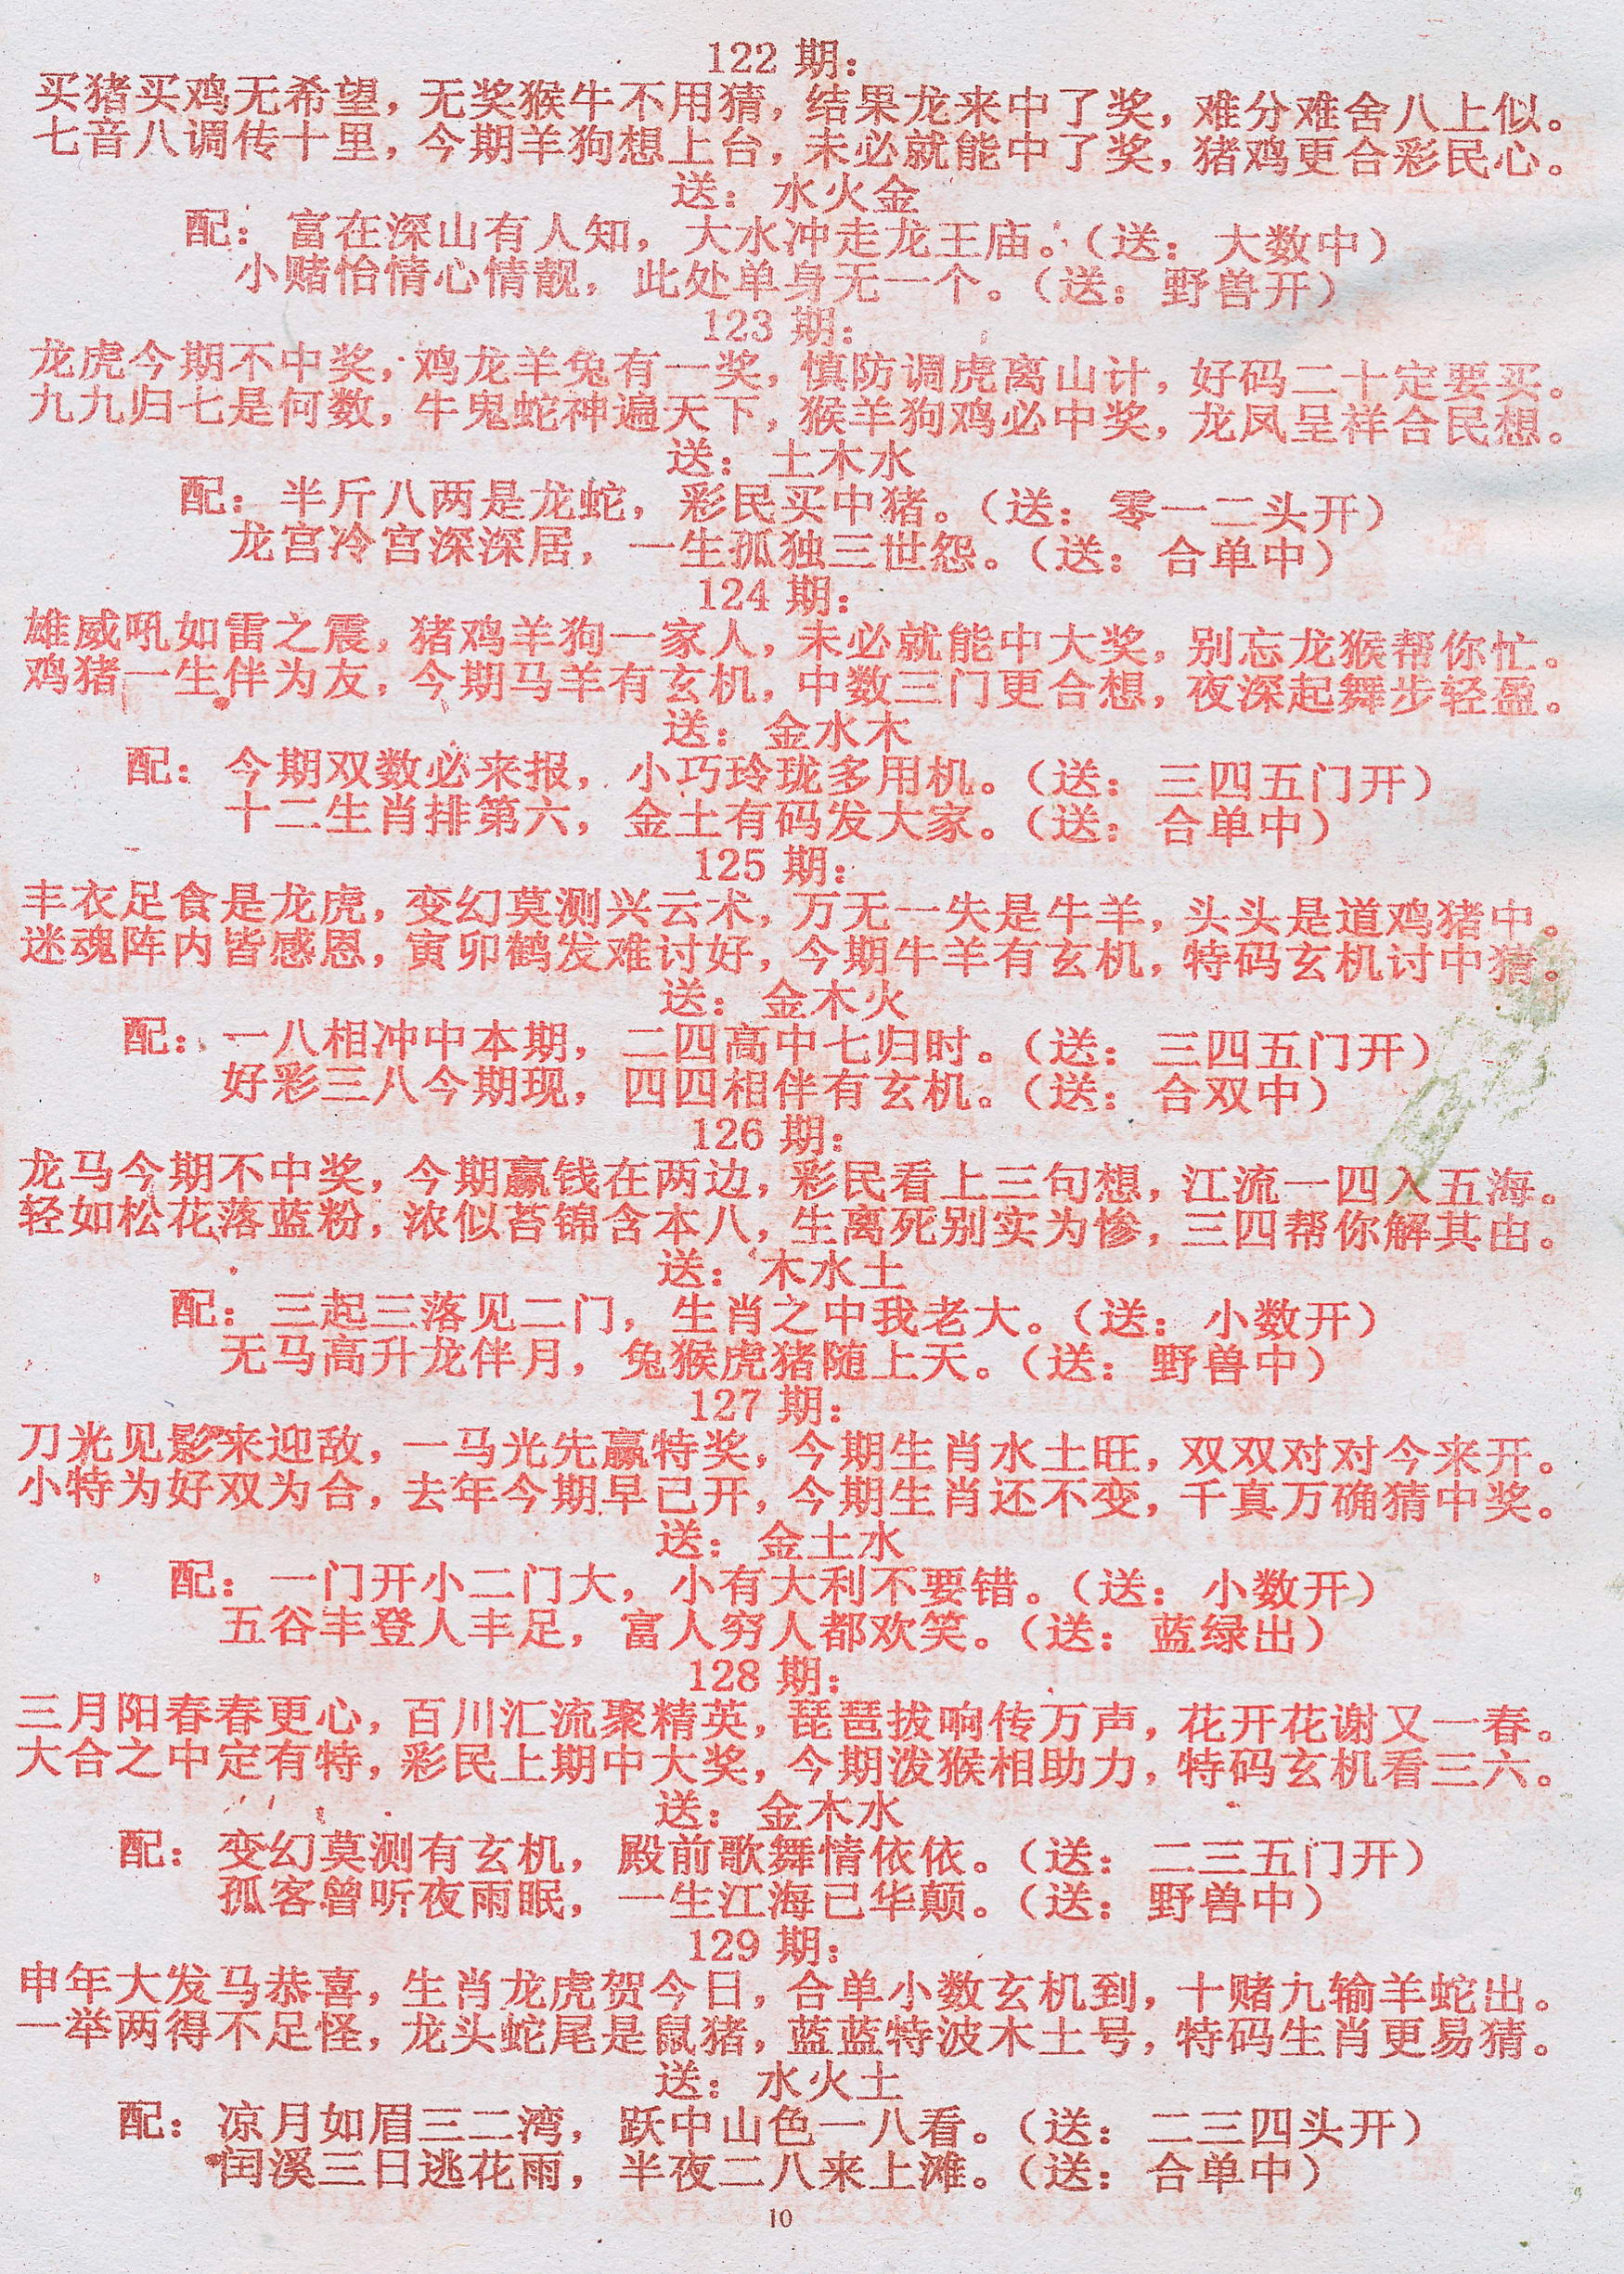 122 期：
买猪买鸡无希望，无奖猴牛不用猜，结果龙来中了奖，难分难舍八上似。
七音八调传十里，今期羊狗想上台，未必就能中了奖，猪鸡更合彩民心。
送：水火金
配：富在深山有人知，大水冲走龙王庙。（送：大数中）
小赌怡情心情靓，此处单身无一个。（送：野兽开）
123 期：
龙虎今期不中奖，鸡龙羊兔有一奖，慎防调虎离山计，好码二十定要买。
九九归七是何数，牛鬼蛇神遍天下，猴羊狗鸡必中奖，龙凤呈祥合民想。
送：土木水
配：半斤八两是龙蛇，彩民买中猪。（送：零一二头开）
龙宫冷宫深深居，一生孤独三世怨。（送：合单中）
124 期：
雄威吼如雷之震，猪鸡羊狗一家人，未必就能中大奖，别忘龙猴帮你忙。
鸡猪一生伴为友，今期马羊有玄机，中数三门更合想，夜深起舞步轻盈。
送：金水木
配：今期双数必来报，小巧玲珑多用机。（送：三四五门开）
十二生肖排第六，金土有码发大家。（送：合单中）
125 期：
丰衣足食是龙虎，变幻莫测兴云术，万无一失是牛羊，头头是道鸡猪中。
迷魂阵内皆感恩，寅卯鹤发难讨好，今期牛羊有玄机，特码玄机讨中猜。
送：金木火
配：一八相冲中本期，二四高中七归时。（送：三四五门开）
好彩三八今期现，四四相伴有玄机。（送：合双中）
126 期：
龙马今期不中奖，今期赢钱在两边，彩民看上三句想，江流一四入五海。
轻如松花落蓝粉，浓似苔锦含本八，生离死别实为惨，三四帮你解其由。
送：木水土
配：三起三落见二门，生肖之中我老大。（送：小数开）
无马高升龙伴月，兔猴虎猪随上天。（送：野兽中）
127 期：
刀光见影来迎敌，一马光先赢特奖，今期生肖水土旺，双双对对今来开。
小特为好双为合，去年今期早己开，今期生肖还不变，千真万确猜中奖。
送：金土水
配：一门开小二门大，小有大利不要错。（送：小数开）
五谷丰登人丰足，富人穷人都欢笑。（送：蓝绿出）
128 期：
三月阳春春更心，百川汇流聚精英，琵琶拔响传万声，花开花谢又一春。
大合之中定有特，彩民上期中大奖，今期泼猴相助力，特码玄机看三六。
送：金木水
配：变幻莫测有玄机，殿前歌舞情依依。（送：二三五门开）
孤客曾听夜雨眠，一生江海己华颠。（送：野兽中）
129 期：
申年大发马恭喜，生肖龙虎贺今日，合单小数玄机到，十赌九输羊蛇出。
一举两得不足怪，龙头蛇尾是鼠猪，蓝蓝特波木土号，特码生肖更易猜。
送：水火土
配：凉月如眉三二湾，跃中山色一八看。（送：二三四头开）
闰溪三日逃花雨，半夜二八来上滩。（送：合单中）
10